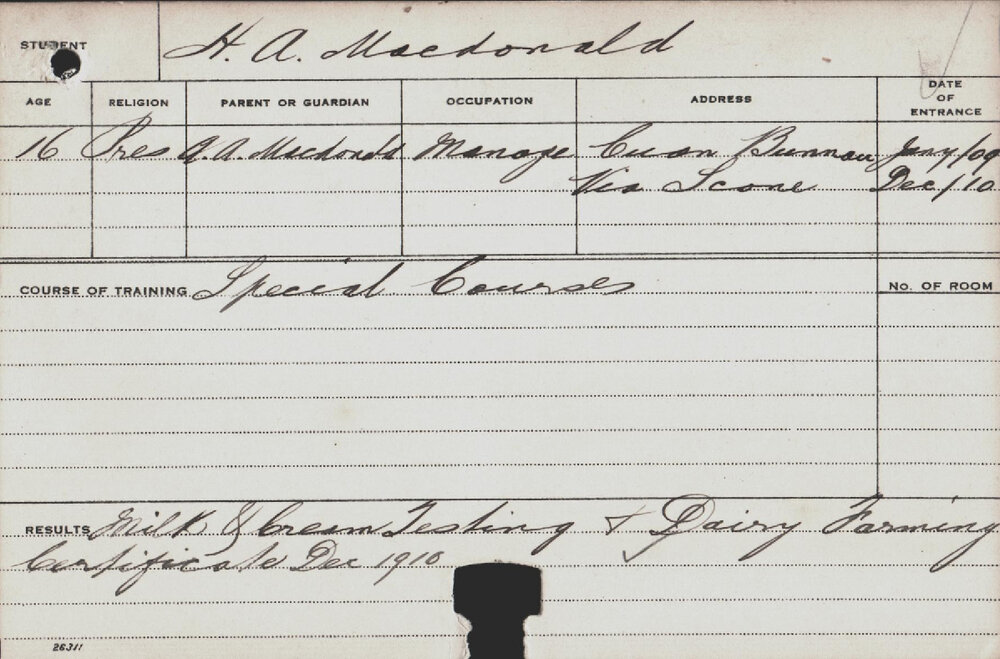 STUDENT H. A. Macdonald
AGE RELIGION PARENT OR GUARDIAN OCCUPATION ADDRESS DATE OF ENTRANCE
16 Pres A. A. Macdonald Manage Cuan Bunnan Jany/09
Via Scone Dec/10
COURSE OF TRAINING Special Courses No. OF ROOM
RESULTS Milk & Cream Testing & Dairy Farming
Certificate Dec 1910
26311